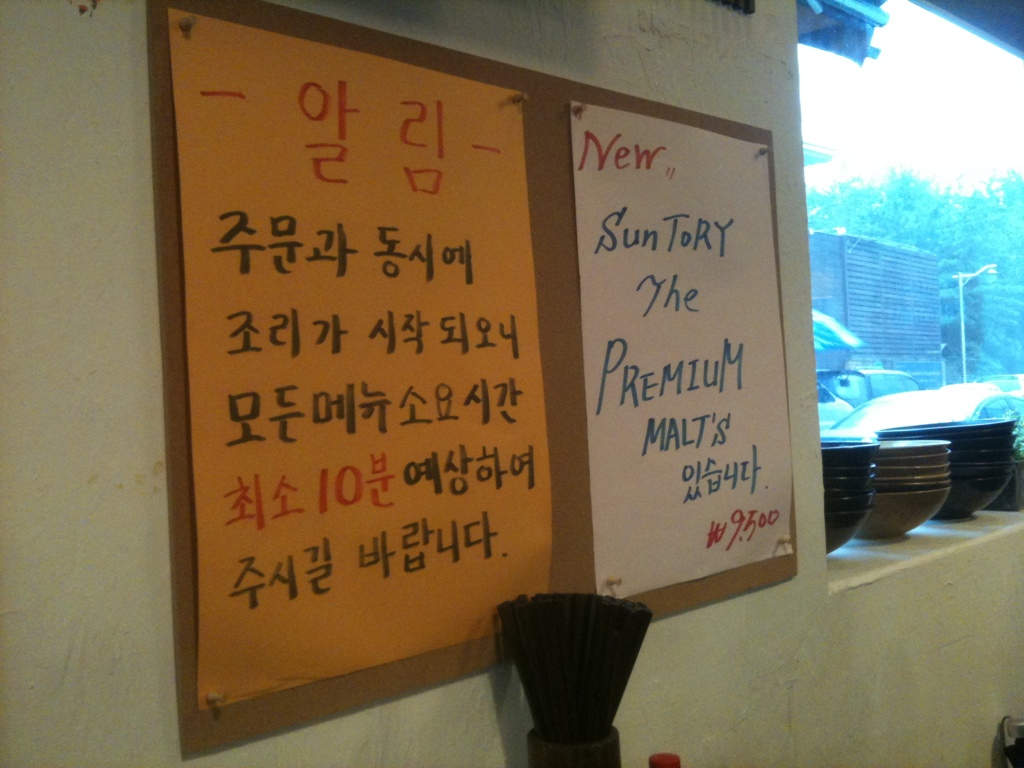 - 알림 -
주문과 동시에
조리가 시작되오니
모든메뉴소요시간
최소10분예상하여
주시길 바랍니다.
New,,
SunToRY
The
PREMIUM
MALT'S
있습니다.
₩9.500